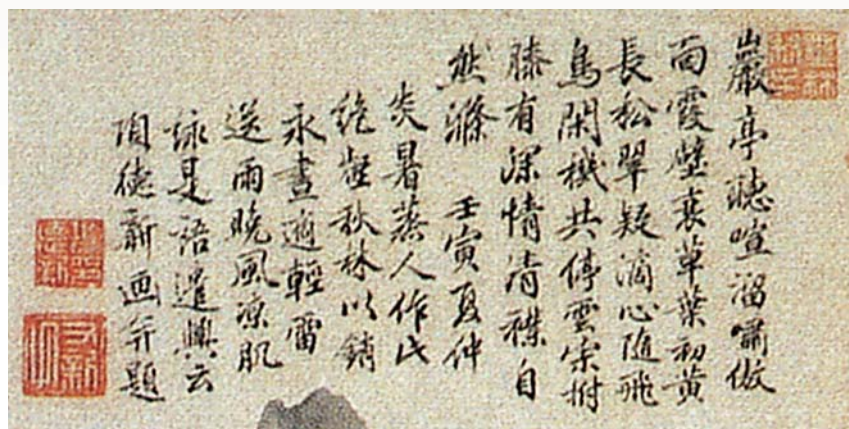 巖亭聽喧溜嘯傲
面霞壁衰草葉初黄
長松翠疑滴心随飛
鳥閑機共停雲寂拊
膝有深情清襟自
然滌 壬寅夏仲
炎暑蒸人作此
絶壑秋林以銷
永晝適輕雷
送雨晚風涼肌
詠是語遣興云
項德新画并題